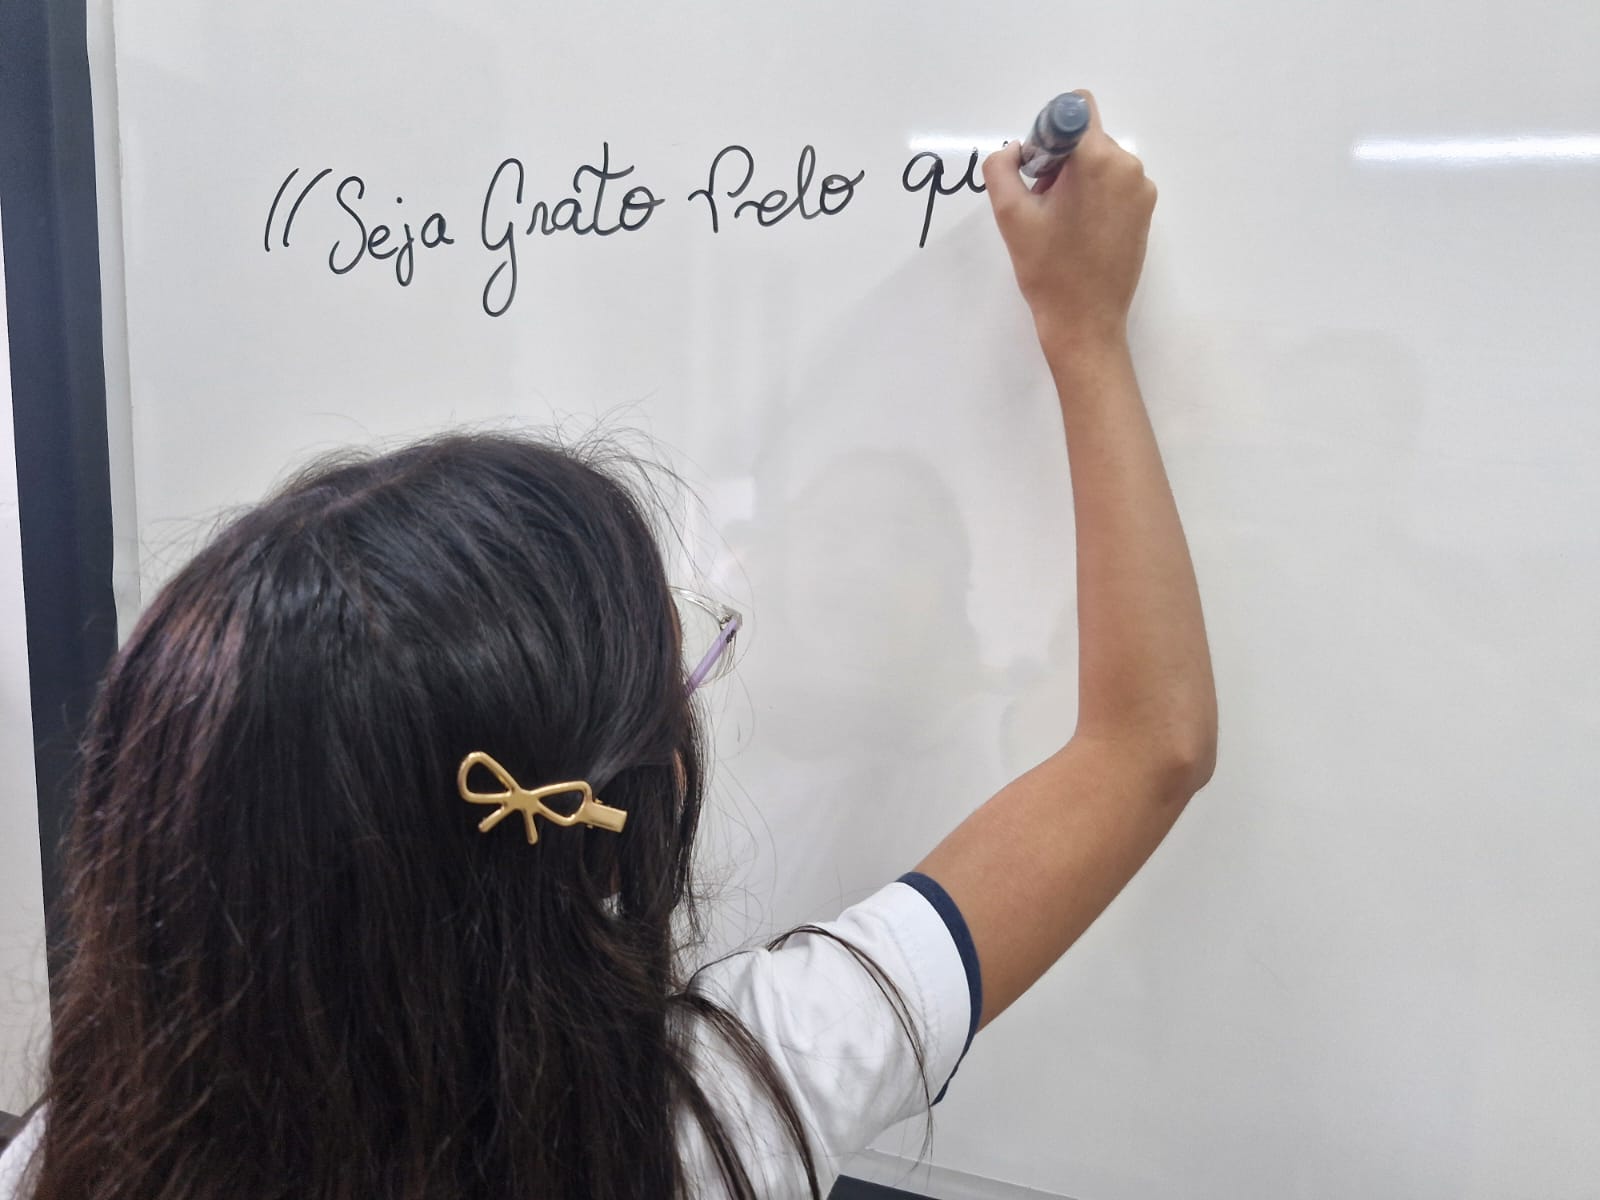 "Seja Grato Pelo qu